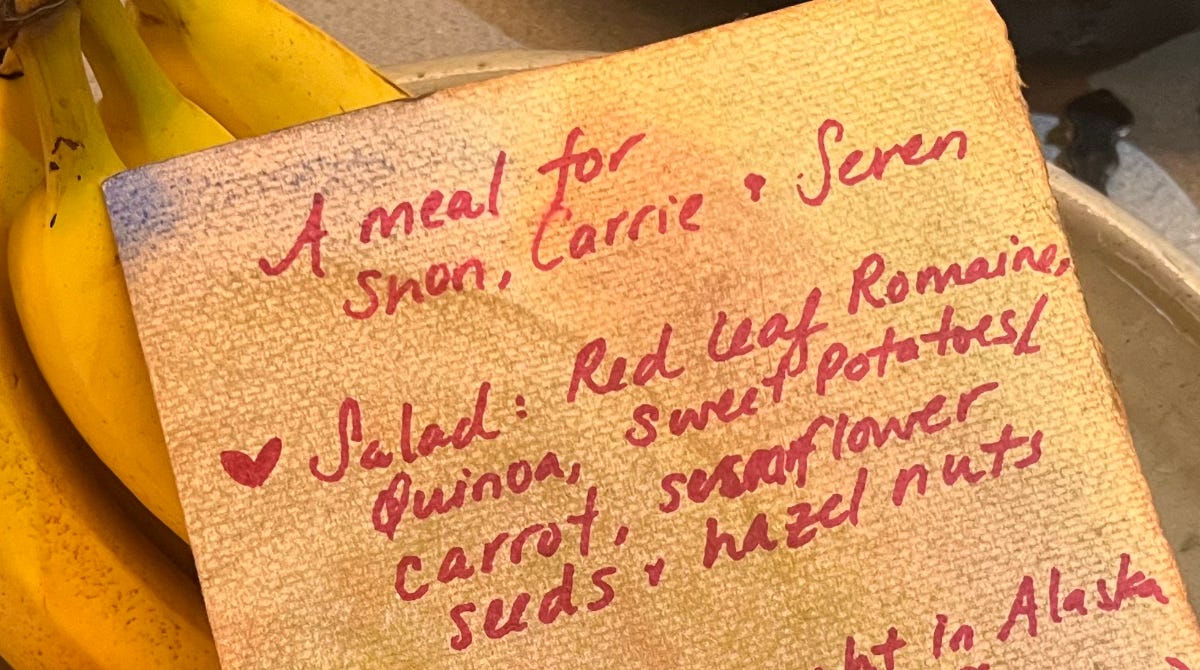 A meal for
Snon, Carrie + Seven
♥ Salad: Red Leaf Romaine,
Quinoa, sweet potatoes/
carrot, sunflower
seeds + hazel nuts
in Alaska